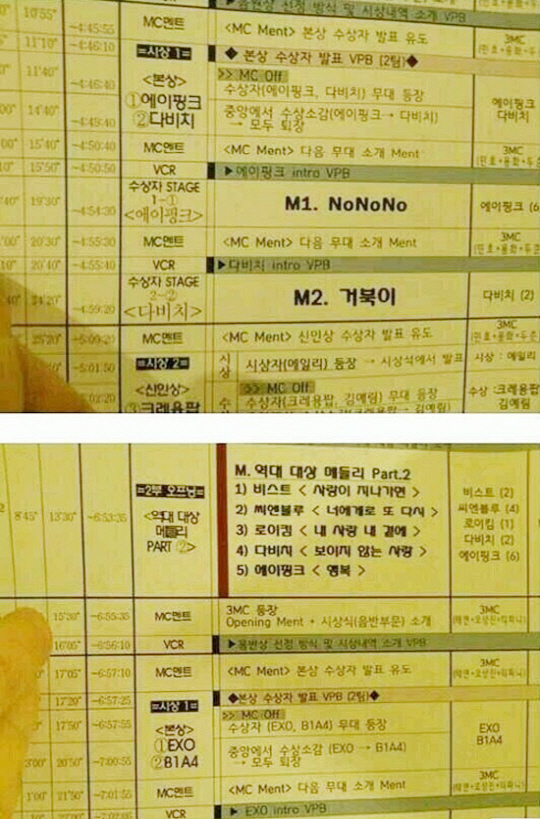 ▶음원상 선정 방식 및 시상내역 소개 VPB
10'55" ~4:45:55 MC멘트 <MC Ment> 본상 수상자 발표 유도 3MC
11'10" ~4:46:10 =시상 1= ◆ 본상 수상자 발표 VPB (2팀)◆
11'40" ~4:46:40 <본상> >> MC Off
수상자(에이핑크, 다비치) 무대 등장
①에이핑크
②다비치
에이핑크
다비치
14'40" ~4:49:40 중앙에서 수상소감(에이핑크→ 다비치)
→ 모두 퇴장
15'40" ~4:50:40 MC멘트 <MC Ment> 다음 무대 소개 Ment 3MC
15'50" ~4:50:50 VCR ▶에이핑크 intro VPB
19'30" ~4:54:30 수상자 STAGE
1-①
<에이핑크>
M1. NoNoNo
에이핑크 (6
20'30" ~4:55:30 MC멘트 <MC Ment> 다음 무대 소개 Ment 3MC
20'40" ~4:55:40 VCR ▶다비치 intro VPB
24'20" ~4:59:20 수상자 STAGE
2-②
<다비치>
M2. 거북이
다비치 (2)
25'20" MC멘트 <MC Ment> 신인상 수상자 발표 유도 3MC
~5:01:50 =시상 2= 시상 시상자(에일리) 등장 → 시상석에서 발표 시상 : 에일리
<신인상> >> MC Off
③크레용팝 수 수상자(크레용팝, 김예림) 무대 등장 수상 :크레용팝
김예림
8'45" 13'30" ~6:53:35 =2부 오프닝=
<역대 대상
메들리
PART ②>
M. 역대 대상 메들리 Part.2
1) 비스트 < 사랑이 지나가면 > 비스트 (2)
2) 씨엔블루 < 너에게로 또 다시 > 씨엔블루 (4)
3) 로이킴 < 내 사랑 내 곁에 > 로이킴 (1)
4) 다비치 < 보이지 않는 사랑 > 다비치 (2)
5) 에이핑크 < 행복 > 에이핑크 (6)
15'30" ~6:55:35 MC멘트 3MC 등장
Opening Ment + 시상식(음반부문) 소개 3MC
16'05" ~6:56:10 VCR ▶음반상 선정 방식 및 시상내역 소개 VPB
17'05" ~6:57:10 MC멘트 <MC Ment> 본상 수상자 발표 유도 3MC
17'20" ~6:57:25 =시상 1= ◆본상 수상자 발표 VPB (2팀)◆
17'50" ~6:57:55 <본상> >> MC Off
수상자 (EXO, B1A4) 무대 등장
①EXO
②B1A4
EXO
B1A4
3'00" 20'50" ~7:00:55 중앙에서 수상소감 (EXO → B1A4)
→ 모두 퇴장
1'00" 21'50" ~7:01:55 MC멘트 <MC Ment> 다음 무대 소개 Ment 3MC
VCR ▶ EXO intro VPB